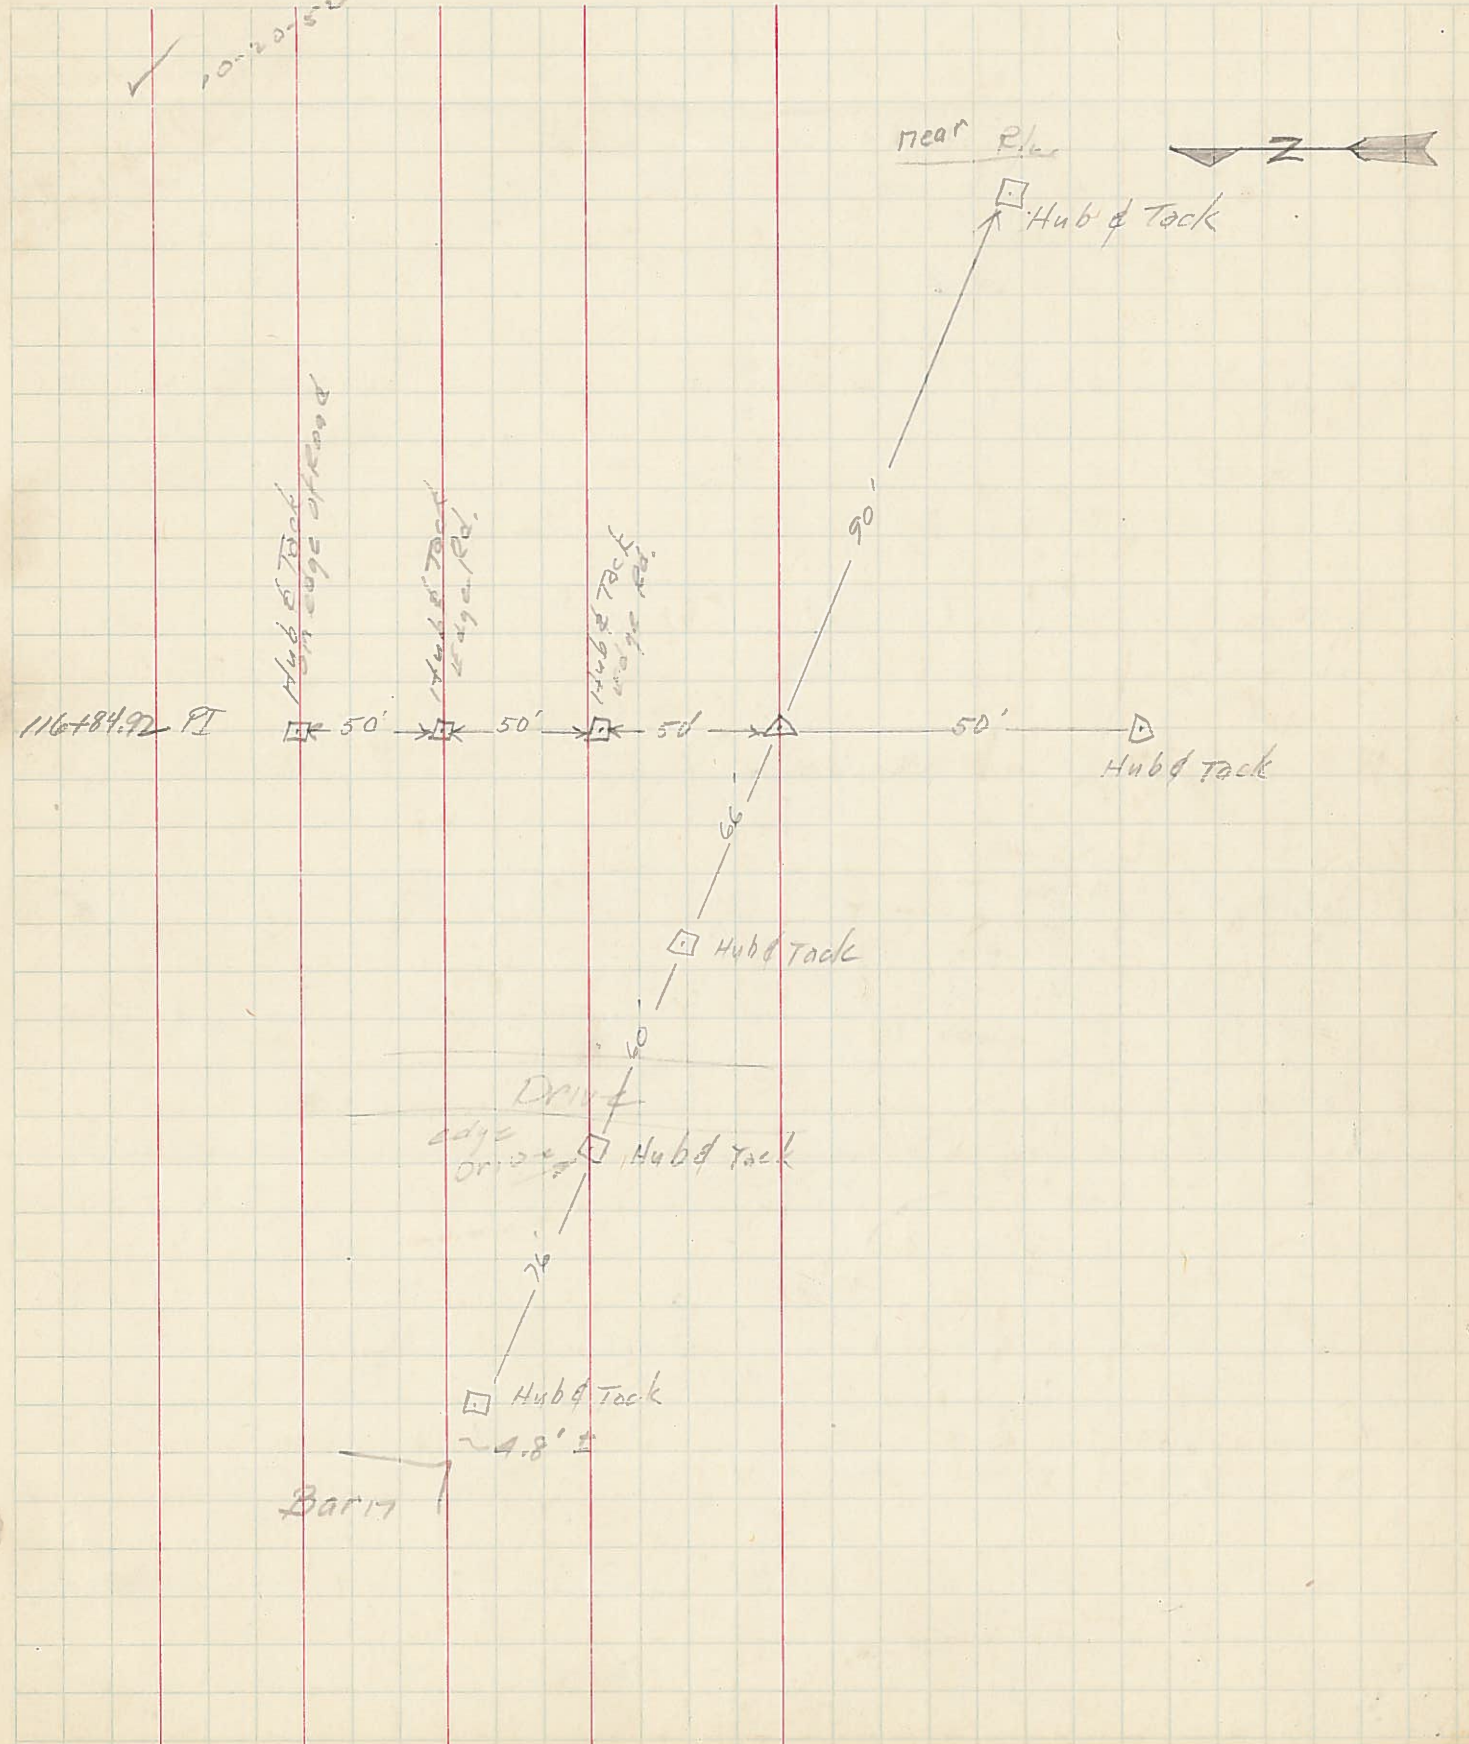 10-20-52
near
N
Hub & Tack
Hub & Tack
on edge of Road
Hub & Tack
Edge Rd.
Hub & Tack
Edge Rd.
90'
116+84.92 PI
50'
50'
50'
50'
Hub & Tack
66'
Hub & Tack
60'
Drive
edge
Drive
Hub & Tack
76'
Hub & Tack
~4.8' ±
Barn